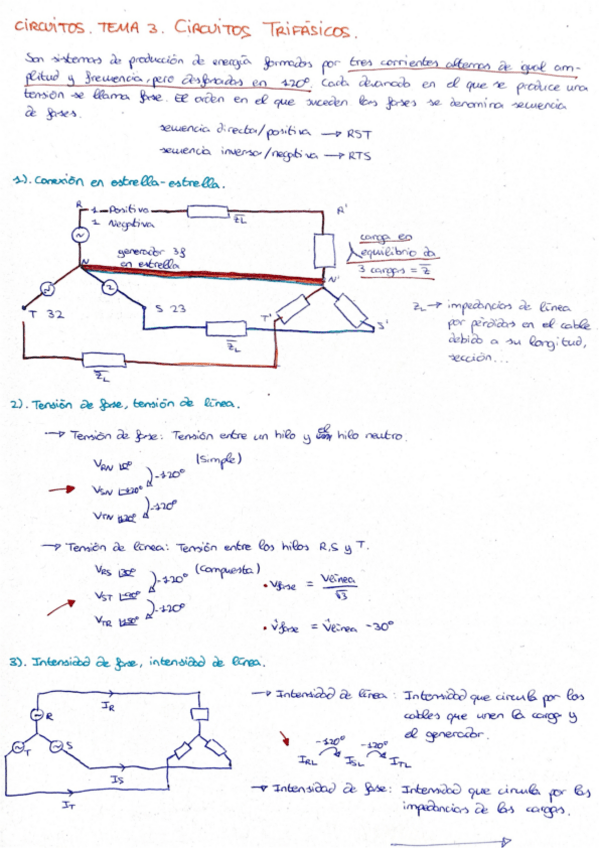 CIRCUITOS. TEMA 3. CIRCUITOS TRIFÁSICOS.
Son sistemas de producción de energía formados por tres corrientes alternas de igual am-
plitud y frecuencia, pero desfasadas en 120º. Cada devanado en el que se produce una
tensión se llama fase. El orden en el que suceden las fases se denomina secuencia
de fases.
secuencia directa/positiva → RST
secuencia inversa/negativa → RTS
1). Conexión en estrella-estrella.
R
1 Positiva
Negativa
Z̅L
R'
generador 3f
en estrella
N
N'
carga en
equilibrio da
3 cargas = Z̅
T 32
S 23
T'
S'
Z̅L
Z̅L
ZL → impedancias de línea
por pérdidas en el cable
debido a su longitud,
sección...
2). Tensión de fase, tensión de línea.
→ Tensión de fase: Tensión entre un hilo y el hilo neutro.
VRN 0º
(Simple)
-120º
VSN -120º
-120º
VTN 120º
→ Tensión de línea: Tensión entre los hilos R,S y T.
VRS 30º
(Compuesta)
-120º
VST -90º
-120º
VTR 150º
• Vfase = Vlínea / √3
• Vfase = Vlínea -30º
3). Intensidad de fase, intensidad de línea.
IR
R
T
S
IS
IT
→ Intensidad de línea: Intensidad que circula por los
cables que unen la carga y
el generador.
-120º -120º
IRL ISL ITL
→ Intensidad de fase: Intensidad que circula por las
impedancias de las cargas.